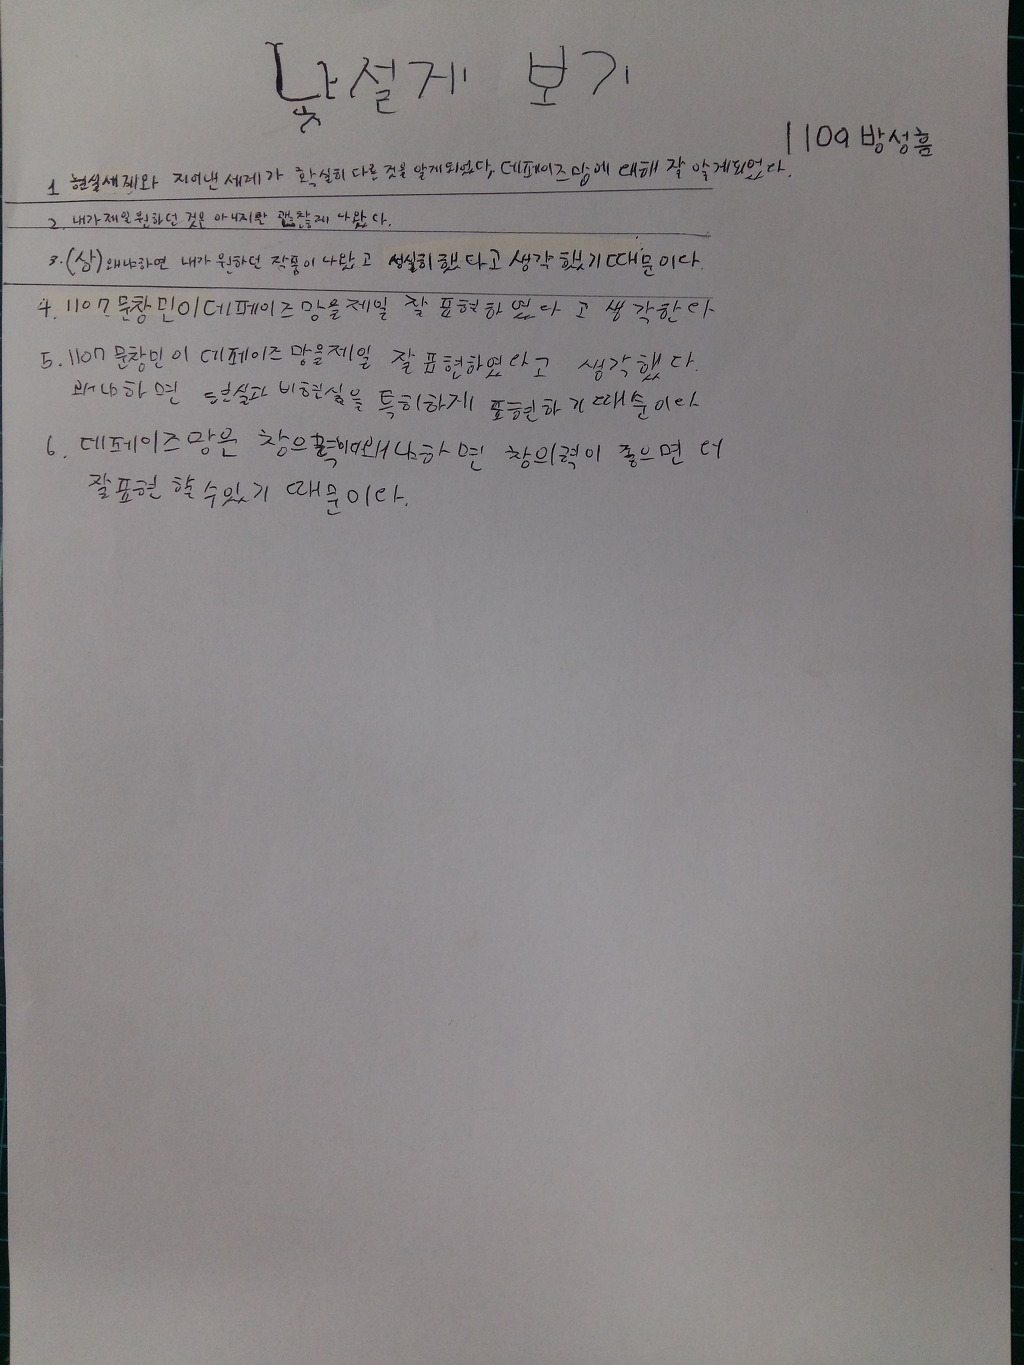 낯설게 보기
1109 방성흠
1 현실세계와 지어낸 세계가 확실히 다른 것을 알게되었다, 데페이즈망에 대해 잘 알게되었다.
2. 내가 제일 원하던 것은 아니지만 괜찮게 나왔다.
3. (상) 왜냐하면 내가 원하던 작품이 나왔고 성실히 했다고 생각했기 때문이다.
4. 1107 문창민이 데페이즈망을 제일 잘 표현하였다고 생각한다
5. 1107 문창민이 데페이즈망을 제일 잘 표현하였다고 생각했다.
왜냐하면 현실과 비현실을 특히하게 표현하기 때문이다
6. 데페이즈망은 왜냐하면 창의력이 좋으면 더
잘 표현 할 수 있기 때문이다.